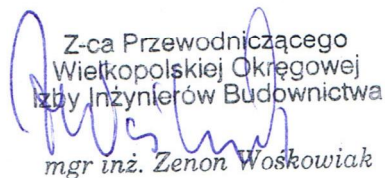 Z-ca Przewodniczącego
Wielkopolskiej Okręgowej
Izby Inżynierów Budownictwa
mgr inż. Zenon Wośkowiak